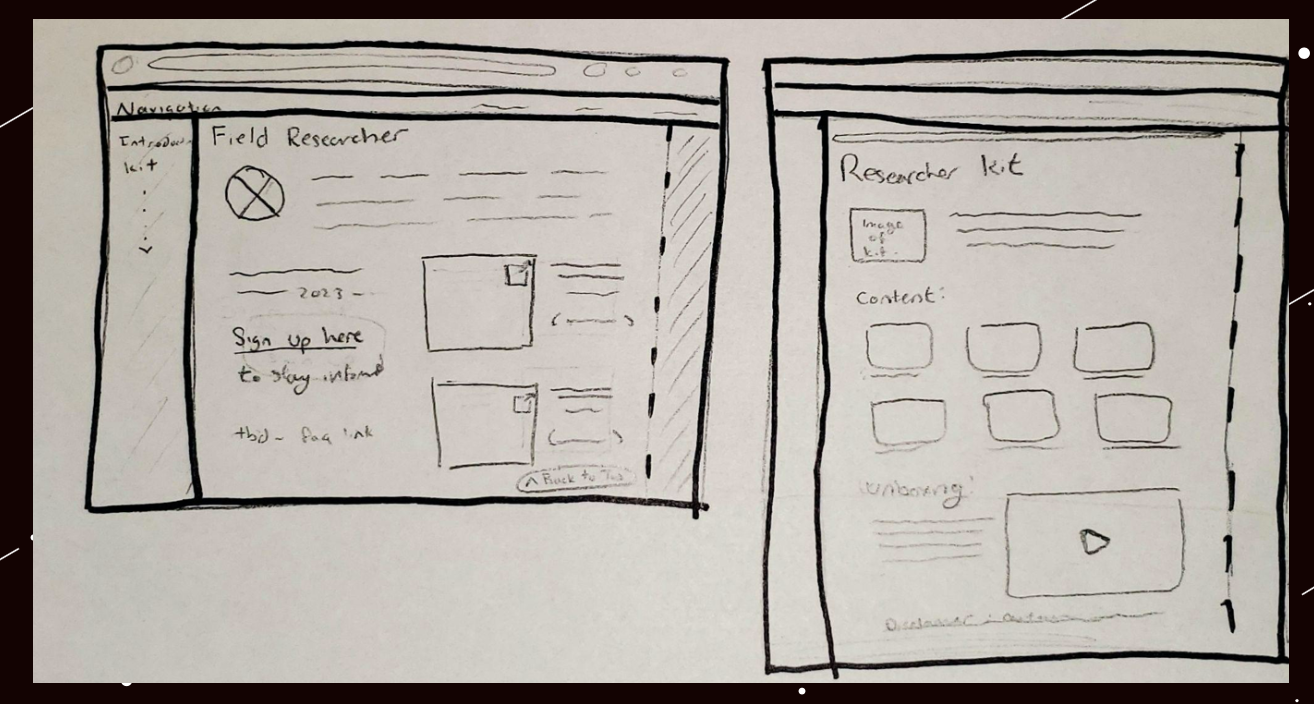 Navigation
kit
Field Researcher
2023 -
Sign up here
to stay
tbd - faq link
^ Back to Top
Researcher kit
Image
of
kit.
Content:
Unboxing: